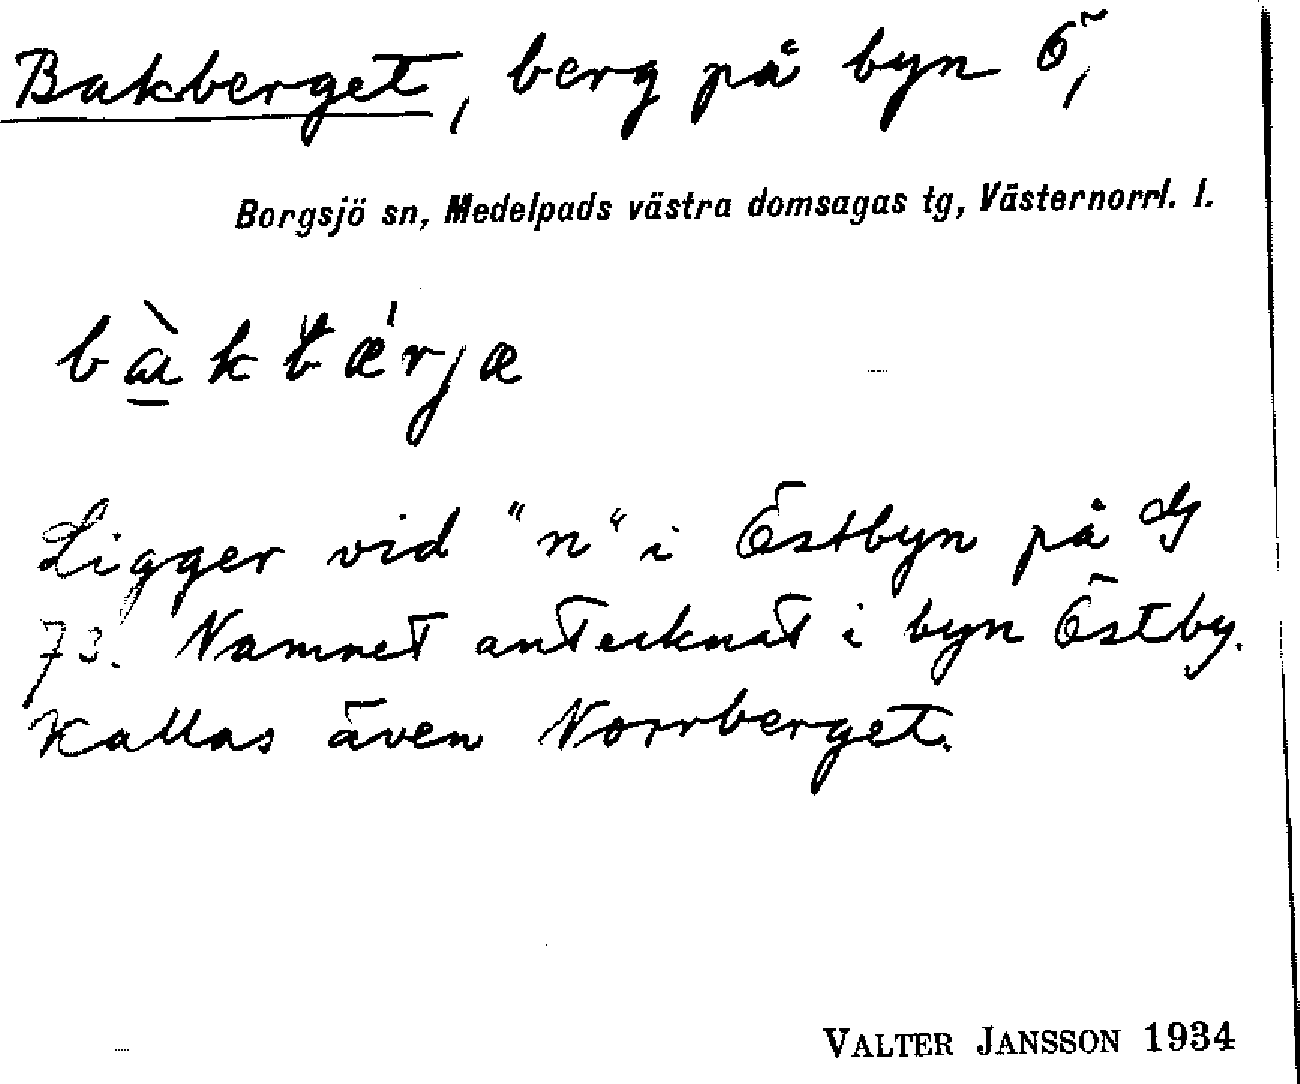 Bakberget, berg på byn Ö,
Borgsjö sn, Medelpads västra domsagas tg, Västernorrl. l.
bàkbǽrjæ
Ligger vid "n" i Östbyn på G
73. Namnet antecknat i byn Östby.
Kallas även Norrberget.
VALTER JANSSON 1934